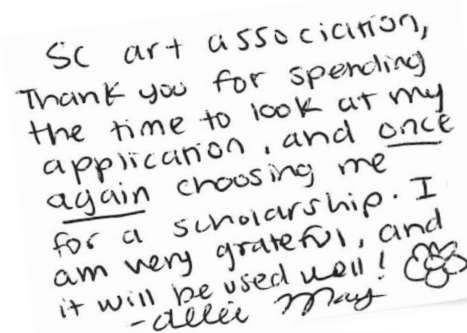 SC art association,
Thank you for spending
the time to look at my
application, and once
again choosing me
for a scholarship. I
am very grateful, and
it will be used well!
-Allie May